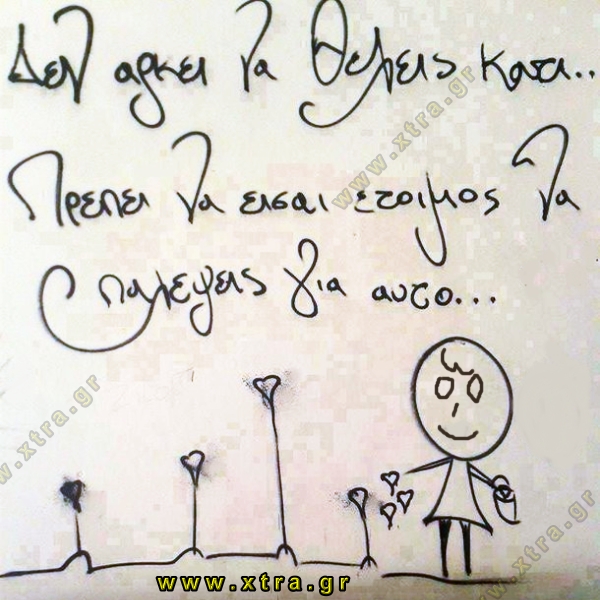 Δεν αρκει να θελεις κατι..
Πρεπει να εισαι ετοιμος να
παλεψεις για αυτο...
www.xtra.gr
www.xtra.gr
www.xtra.gr
www.xtra.gr
www.xtra.gr